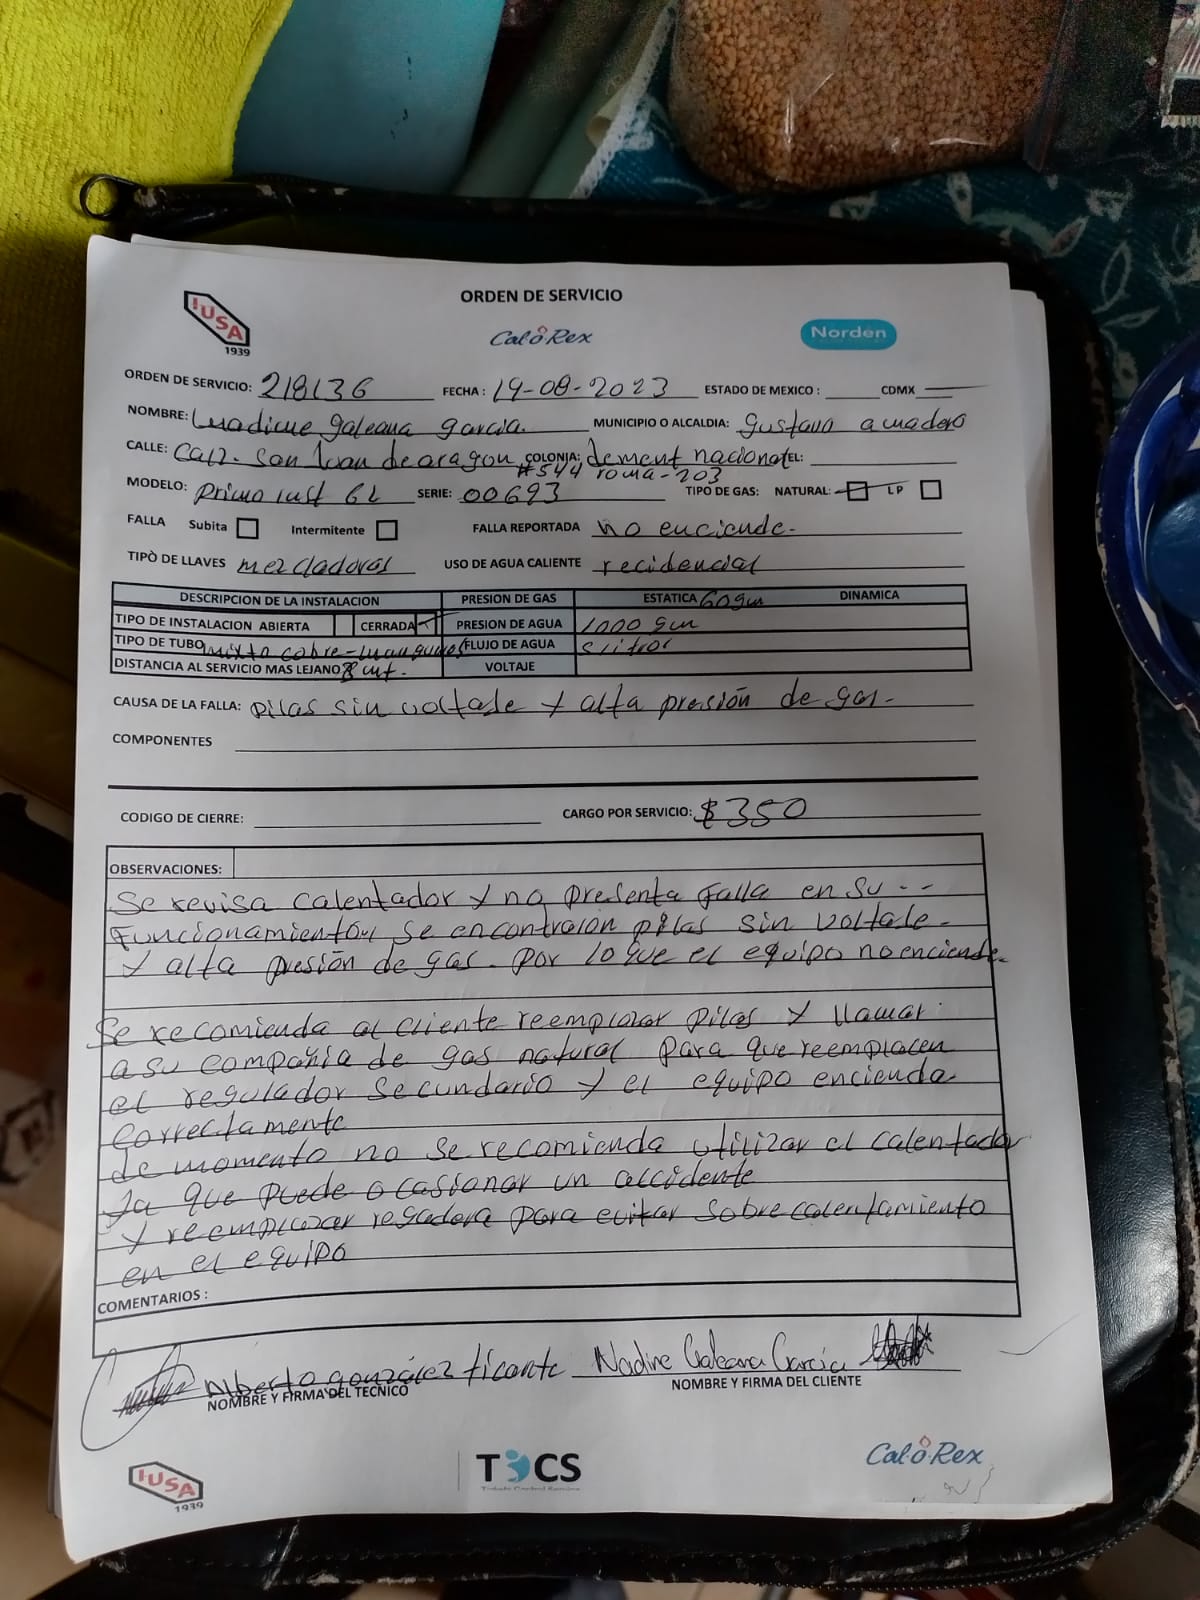 ORDEN DE SERVICIO
IUSA
1939
Cal-o-Rex
Norden
ORDEN DE SERVICIO: 218136 FECHA: 19-08-2023 ESTADO DE MEXICO: CDMX
NOMBRE: galeana garcia. MUNICIPIO O ALCALDIA: gustavo a madero
CALLE: Calz. San Juan de aragon COLONIA: dement nacional TEL:
#544 roma-203
MODELO: Prime inst 6L SERIE: 00693 TIPO DE GAS: NATURAL: LP
FALLA Subita Intermitente FALLA REPORTADA no enciende-
TIPÒ DE LLAVES mezcladoras USO DE AGUA CALIENTE recidencial
DESCRIPCION DE LA INSTALACION PRESION DE GAS ESTATICA 60gm DINAMICA
TIPO DE INSTALACION ABIERTA CERRADA PRESION DE AGUA 1000 gm
TIPO DE TUBO mixto cobre-mangueras FLUJO DE AGUA 5 litros
DISTANCIA AL SERVICIO MAS LEJANO 8 mt. VOLTAJE
CAUSA DE LA FALLA: pilas sin voltaje y alta presión de gas-
COMPONENTES
CODIGO DE CIERRE: CARGO POR SERVICIO: $350
OBSERVACIONES:
Se revisa calentador y no presenta falla en su--
Funcionamiento, se encontraron pilas sin voltaje-
y alta presión de gas. por lo que el equipo no enciende.
Se recomienda al cliente reemplazar pilas y llamar
a su compañia de gas natural para que reemplacen
el regulador secundario y el equipo encienda
correctamente
de momento no se recomienda utilizar el calentador
ya que puede ocasionar un accidente
y reemplazar regadera para evitar sobrecalentamiento
en el equipo
COMENTARIOS:
Alberto gonzález ticante Nadine Galeana García
NOMBRE Y FIRMA DEL TECNICO NOMBRE Y FIRMA DEL CLIENTE
IUSA
1939
TCS
Cal-o-Rex